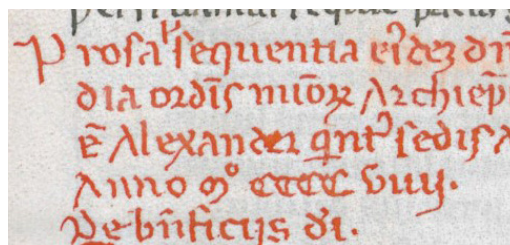 Prosa ł sequentia eiꝰdeʒ dn̄
dia ordīs mīoꝝ Archiep̄
ē Alexander qint9 sedis A
Anno Mº CCCC VIIIJ.
De bn̄ficijs di.